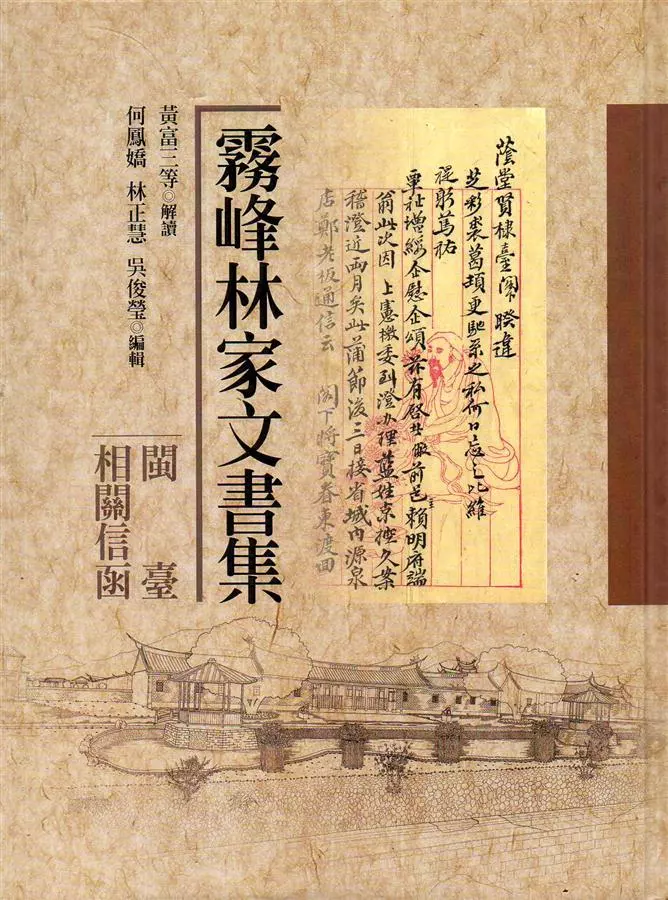 蔭堂賢棣臺閣下暌違
芝彩裘葛頻更馳系之私何日忘之比維
禔躬篤祜
覃祉增綏企慰企頌茲有啓者敝前邑主賴明府端
翁此次因 上憲檄委到澄办理藍姓京控久案
稽澄近兩月矣此蒲節後三日接省城內源泉
店鄭老板通信云 閣下將寶眷東渡回
霧峰林家文書集
閩臺
相關信函
黃富三等◎解讀
何鳳嬌 林正慧 吳俊瑩◎編輯